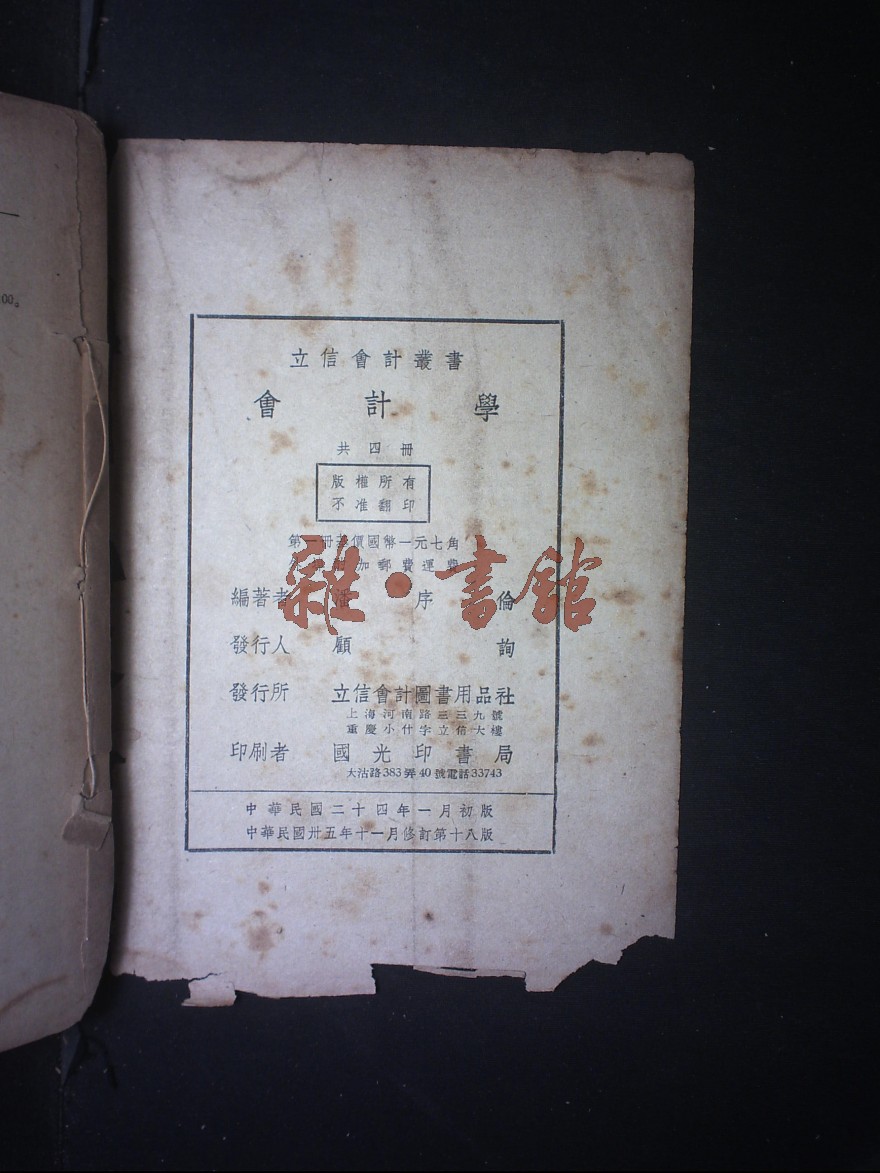 00。
立信會計叢書
會計學
共四冊
版權所有
不准翻印
第一冊 價國幣一元七角
加郵費運費
編著者 潘序倫
發行人 顧詢
發行所 立信會計圖書用品社
上海河南路三三九號
重慶小什字立信大樓
印刷者 國光印書局
大沽路383弄40號電話33743
中華民國二十四年一月初版
中華民國卅五年十一月修訂第十八版
雜·書館